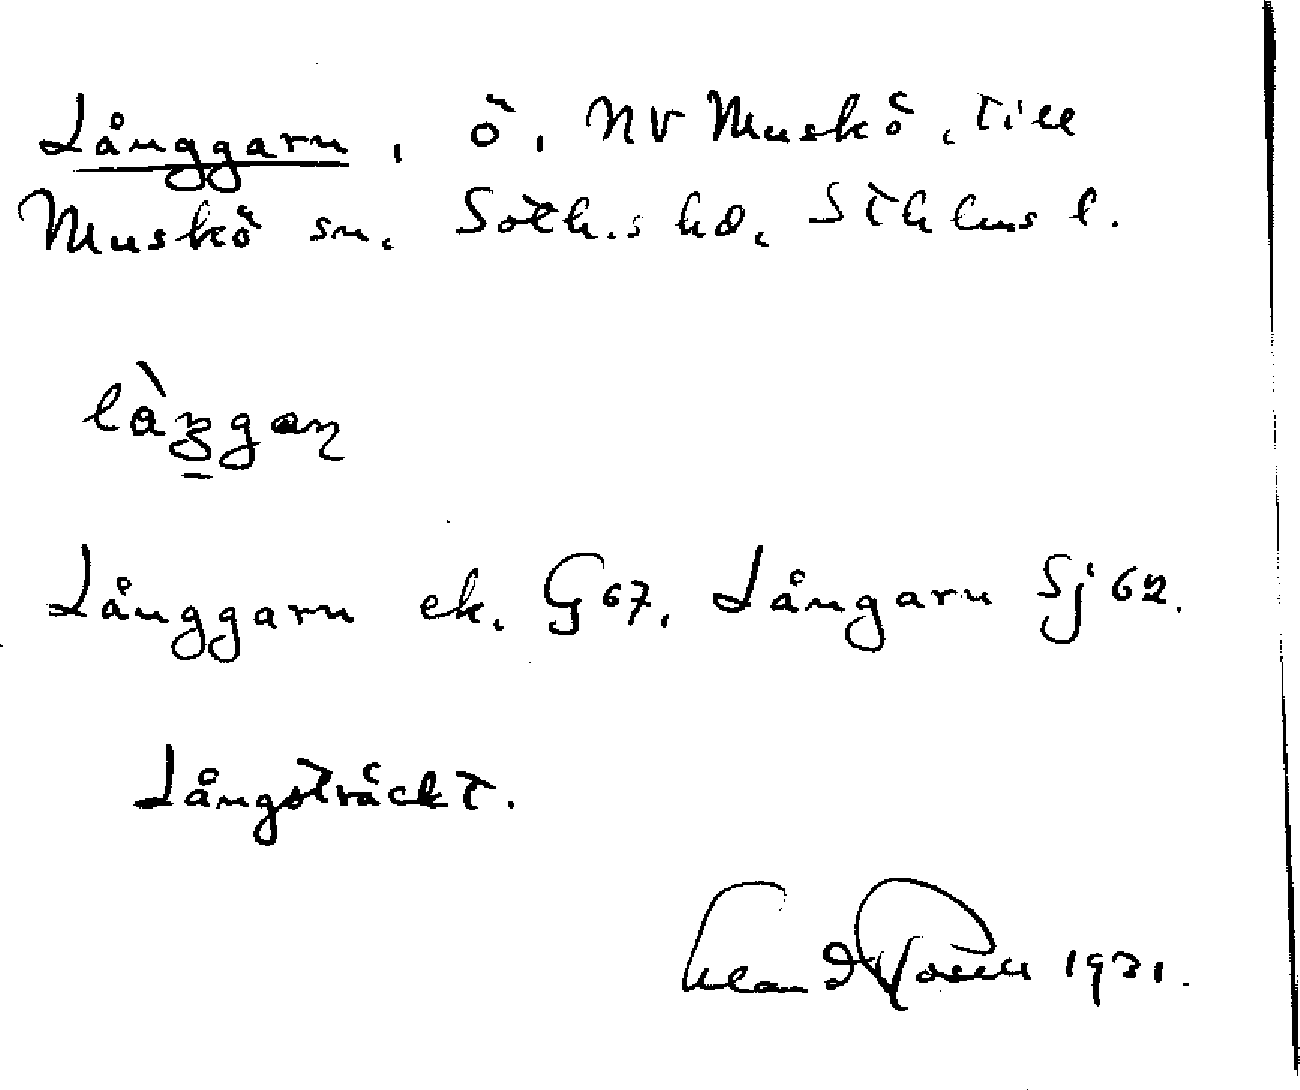 Långgarn, ö, NV Muskö, till
Muskö sn. Soth.s hd. Sthlms l.
Långgarn ek. G 67. Långarn Sj 62.
Långsträckt.
1931.